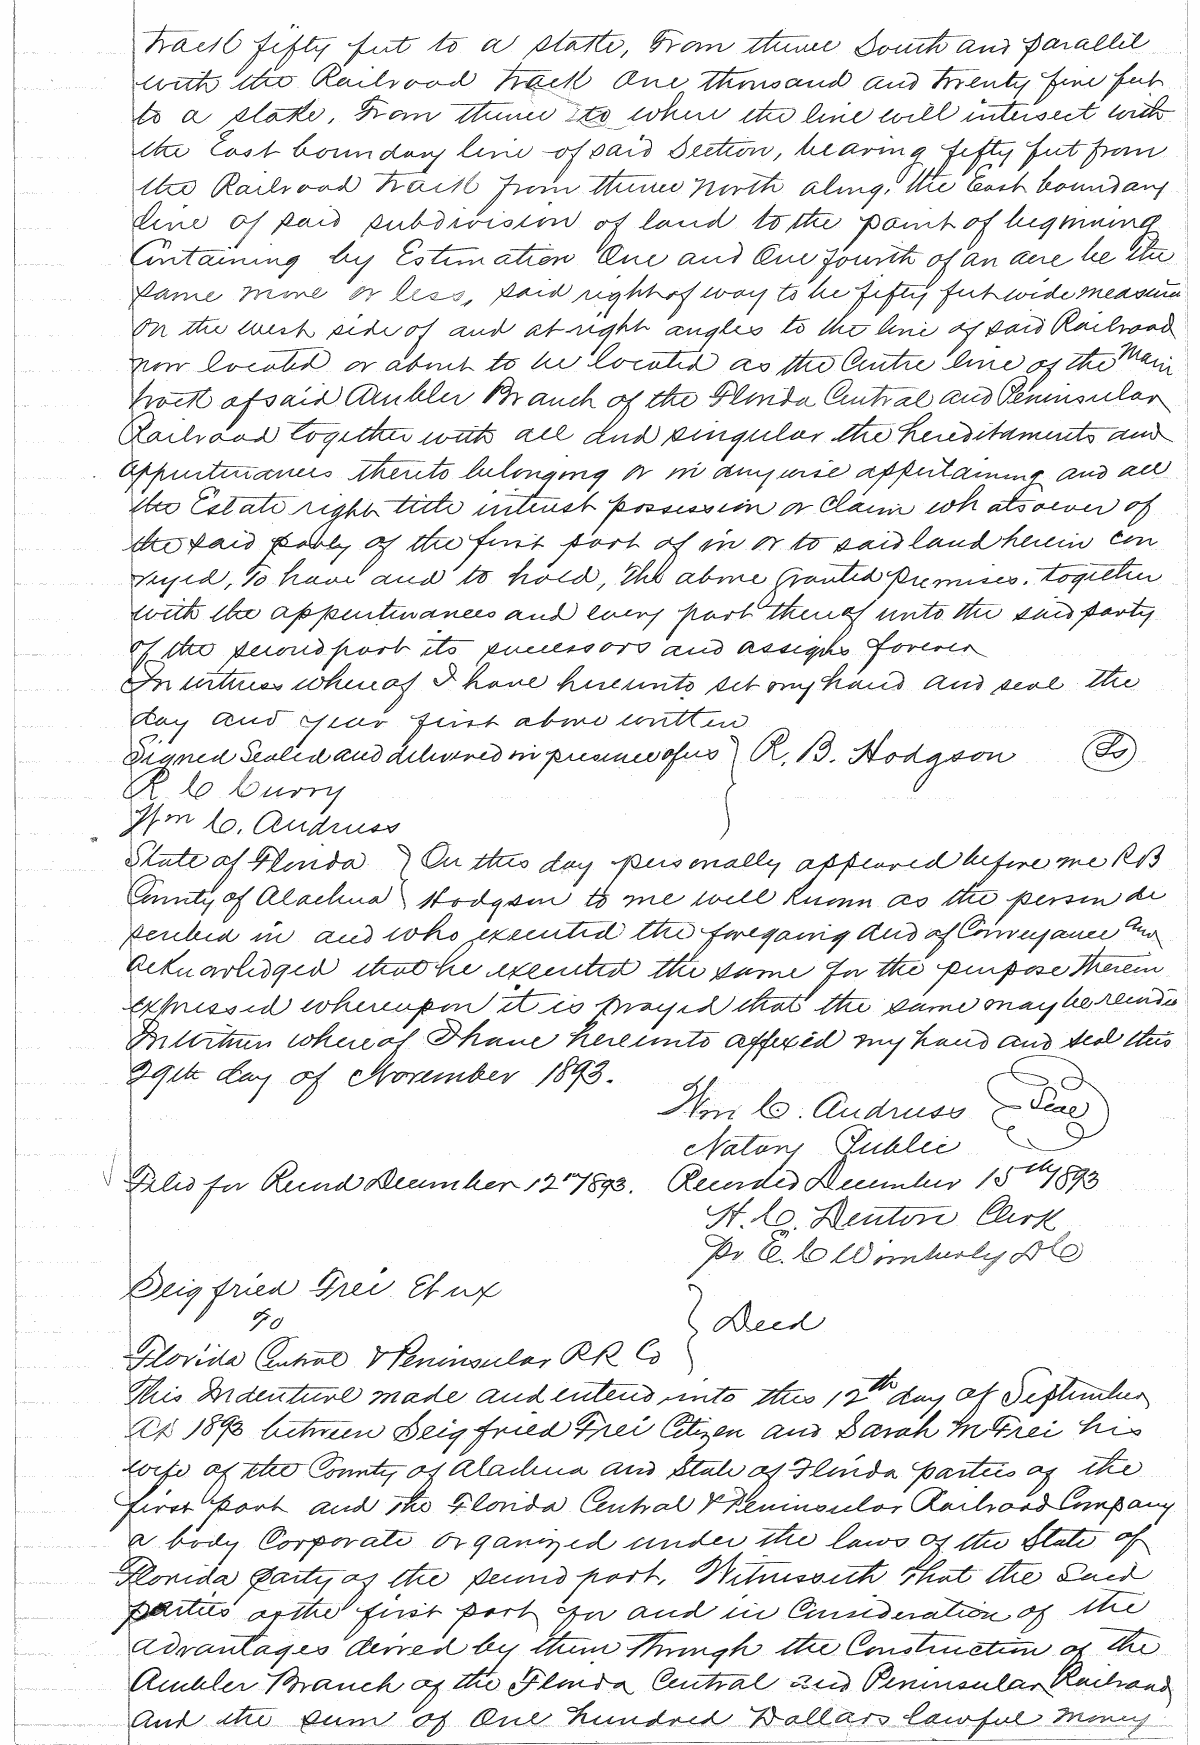 track fifty feet to a stake, From thence South and parallel
with the Railroad track One thousand and twenty five feet
to a stake, From thence to where the line will intersect with
the East boundary line of said Section, bearing fifty feet from
the Railroad track from thence North along the East boundary
line of said subdivision of land to the point of beginning
Containing by Estimation One and One fourth of an acre be the
same more or less, said right of way to be fifty feet wide measure
on the west side of and at right angles to the line of said Railroad
now located or about to be located as the Centre line of the Main
track of said Ambler Branch of the Florida Central and Peninsular
Railroad together with all and singular the hereditaments and
appurtenances thereto belonging or in anywise appertaining and all
the Estate right title interest possession or claim whatsoever of
the said party of the first part of in or to said land herein con
veyed, To have and to hold, The above granted premises, together
with the appurtenances and every part thereof unto the said party
of the second part its successors and assigns forever
In witness whereof I have hereunto set my hand and seal the
day and year first above written
Signed Sealed and delivered in presence of us } R. B. Hodgson (Ls)
R C Curry
Wm C. Andruss
State of Florida } On this day personally appeared before me R B
County of Alachua } Hodgson to me well known as the person de
scribed in and who executed the foregoing deed of Conveyance and
acknowledged that he executed the same for the purpose therein
expressed whereupon it is prayed that the same may be recorded
In witness whereof I have hereunto affixed my hand and seal this
29th day of November 1893.
Wm C. Andruss Seal
Notary Public
Filed for Record December 12th 1893. Recorded December 15th 1893
H. C. Denton Clerk
Pr E. C Wimberly DC
Seigfried Frei Et ux
To } Deed
Florida Central & Peninsular RR Co
This Indenture made and entered into this 12th day of September
AD 1893 between Seigfried Frei Citizen and Sarah M Frei his
wife of the County of Alachua and State of Florida parties of the
first part and the Florida Central & Peninsular Railroad Company
a body Corporate organized under the laws of the State of
Florida party of the second part. Witnesseth that the Said
parties of the first part for and in Consideration of the
advantages derived by them through the Construction of the
Ambler Branch of the Florida Central and Peninsular Railroad
and the sum of One hundred Dollars lawful money